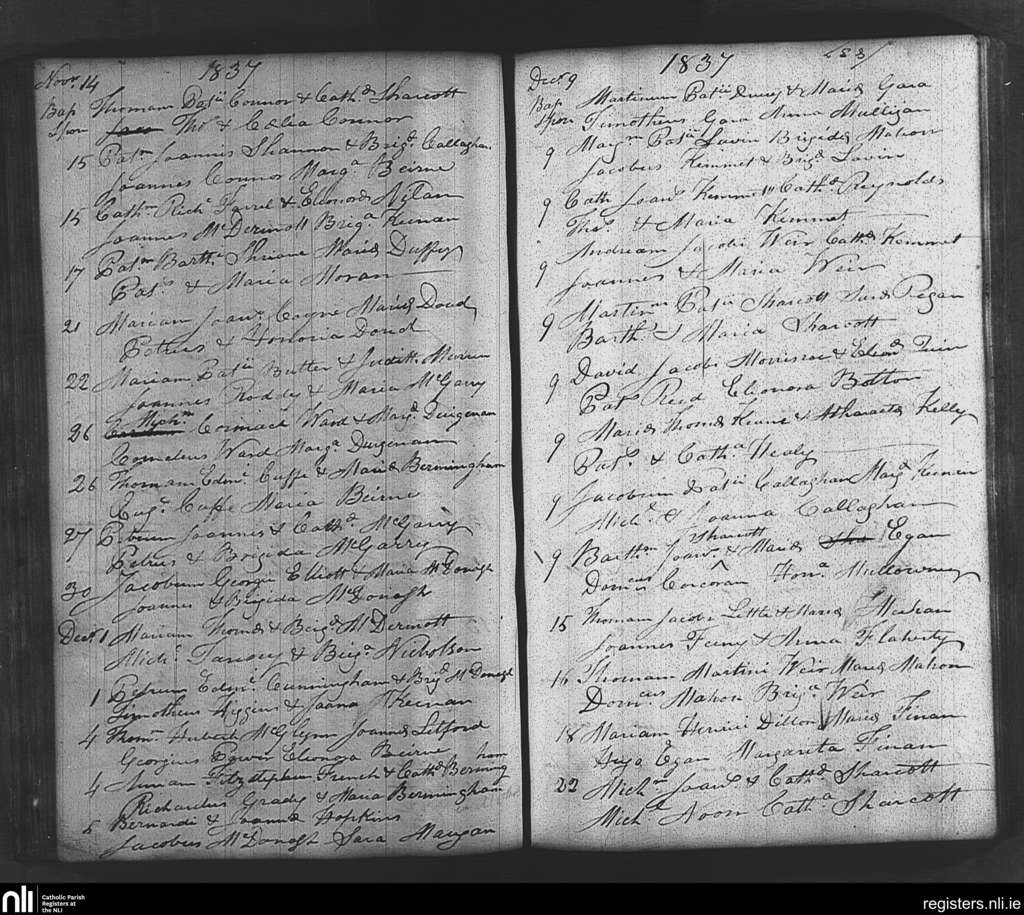 Novr. 14 1837
Bap Thomam Patii Connor & Cathæ Sharcott
Spon Thos & Cælia Connor
15 Patm Joannis Shannon & Brigæ Callaghan
Joannes Connor Marga Beirne
15 Cathm Richi Farrel & Eleonoræ Nylan
Joannes McDermott Briga Keenan
17 Patm Barthi Shriane Mariæ Duffey
Pats & Maria Moran
21 Mariam Joans Coyne Mariæ Doud
Petrus & Honoria Doud
22 Mariam Patii Butler & Judith
Joannes Roddy & Maria McGarry
26 Cormack Ward & Margæ Durgenan
Cornelius Ward Marga Durgenan
26 Thomam Edmi Cuffe & Mariæ Bermingham
Eugs Cuffe Maria Beirne
27 Petrum Joannis & Cathæ McGarry
Petrus & Brigida McGarry
30 Jacobum Georgii Elliott & Maria McDonogh
Joannes & Brigida McDonogh
Decr. 1 Mariam Thomæ & Brigæ McDermott
Michl Tansey & Briga Nicholson
1 Petrum Edmi Cunningham & Brigæ McDonogh
Timotheus Higgins & Joana Keenan
4 Thomm Huberti McGlynn Joannæ Litford
Georgius Eleonora Beirne
4 Annam Fitzstephen French & Cathæ Berming ham
Richardus Grady & Maria Bermingham
5 Bernardi & Joannæ Hopkins
Jacobus McDonogh Sara Mangan
Decr. 9 1837
Bap Martinum Patii Drury & Mariæ Gara
Spon Timotheus Gara Anna Mulligan
9 Margm Patii Lavin Brigidæ Mahon
Jacobus Kemmet & Brigæ Lavin
9 Cath Joans Kemmett Cathæ Reynolds
Thos & Maria Kemmet
9 Andream Jacobi Weir Cathæ Kemmet
Joannes & Maria Weir
9 Martinm Patii Sharcott Saræ Regan
Barths & Maria Sharcott
9 David Jacobi Morrisroe & Eleonæ
Pats Reid Eleonora Bolton
9 Mariæ Thomæ & Margaritæ Kelly
Pats & Catha Healy
9 Jacobum Patii Callaghan Margæ Keenan
Michl & Joanna Callaghan
9 Barthm Joans Sharcott & Mariæ Egan
Domcus Corcoran Hona Mullowney
15 Thomam Jacobi Little & Mariæ Meehan
Joannes Feeny & Anna Flaherty
16 Thomam Martini Weir Mariæ Mahon
Domcus Mahon Briga Weir
18 Mariam Henrici Dillon Mariæ Finan
Hugo Egan Margarita Finan
22 Michm Joans & Cathæ Sharcott
Michl Noon Catha Sharcott
nli Catholic Parish
Registers at
the NLI
registers.nli.ie